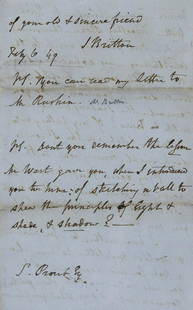 of your old & sincere friend
J Britton
Feby 6 49
P.S. You can read my letter to
Mr Ruskin.
P.S. Dont you remember the lesson
Mr West gave you, when I introduced
you to him; of sketching a ball to
shew the principles of light &
shade, & shadow? —
S. Prout Esq